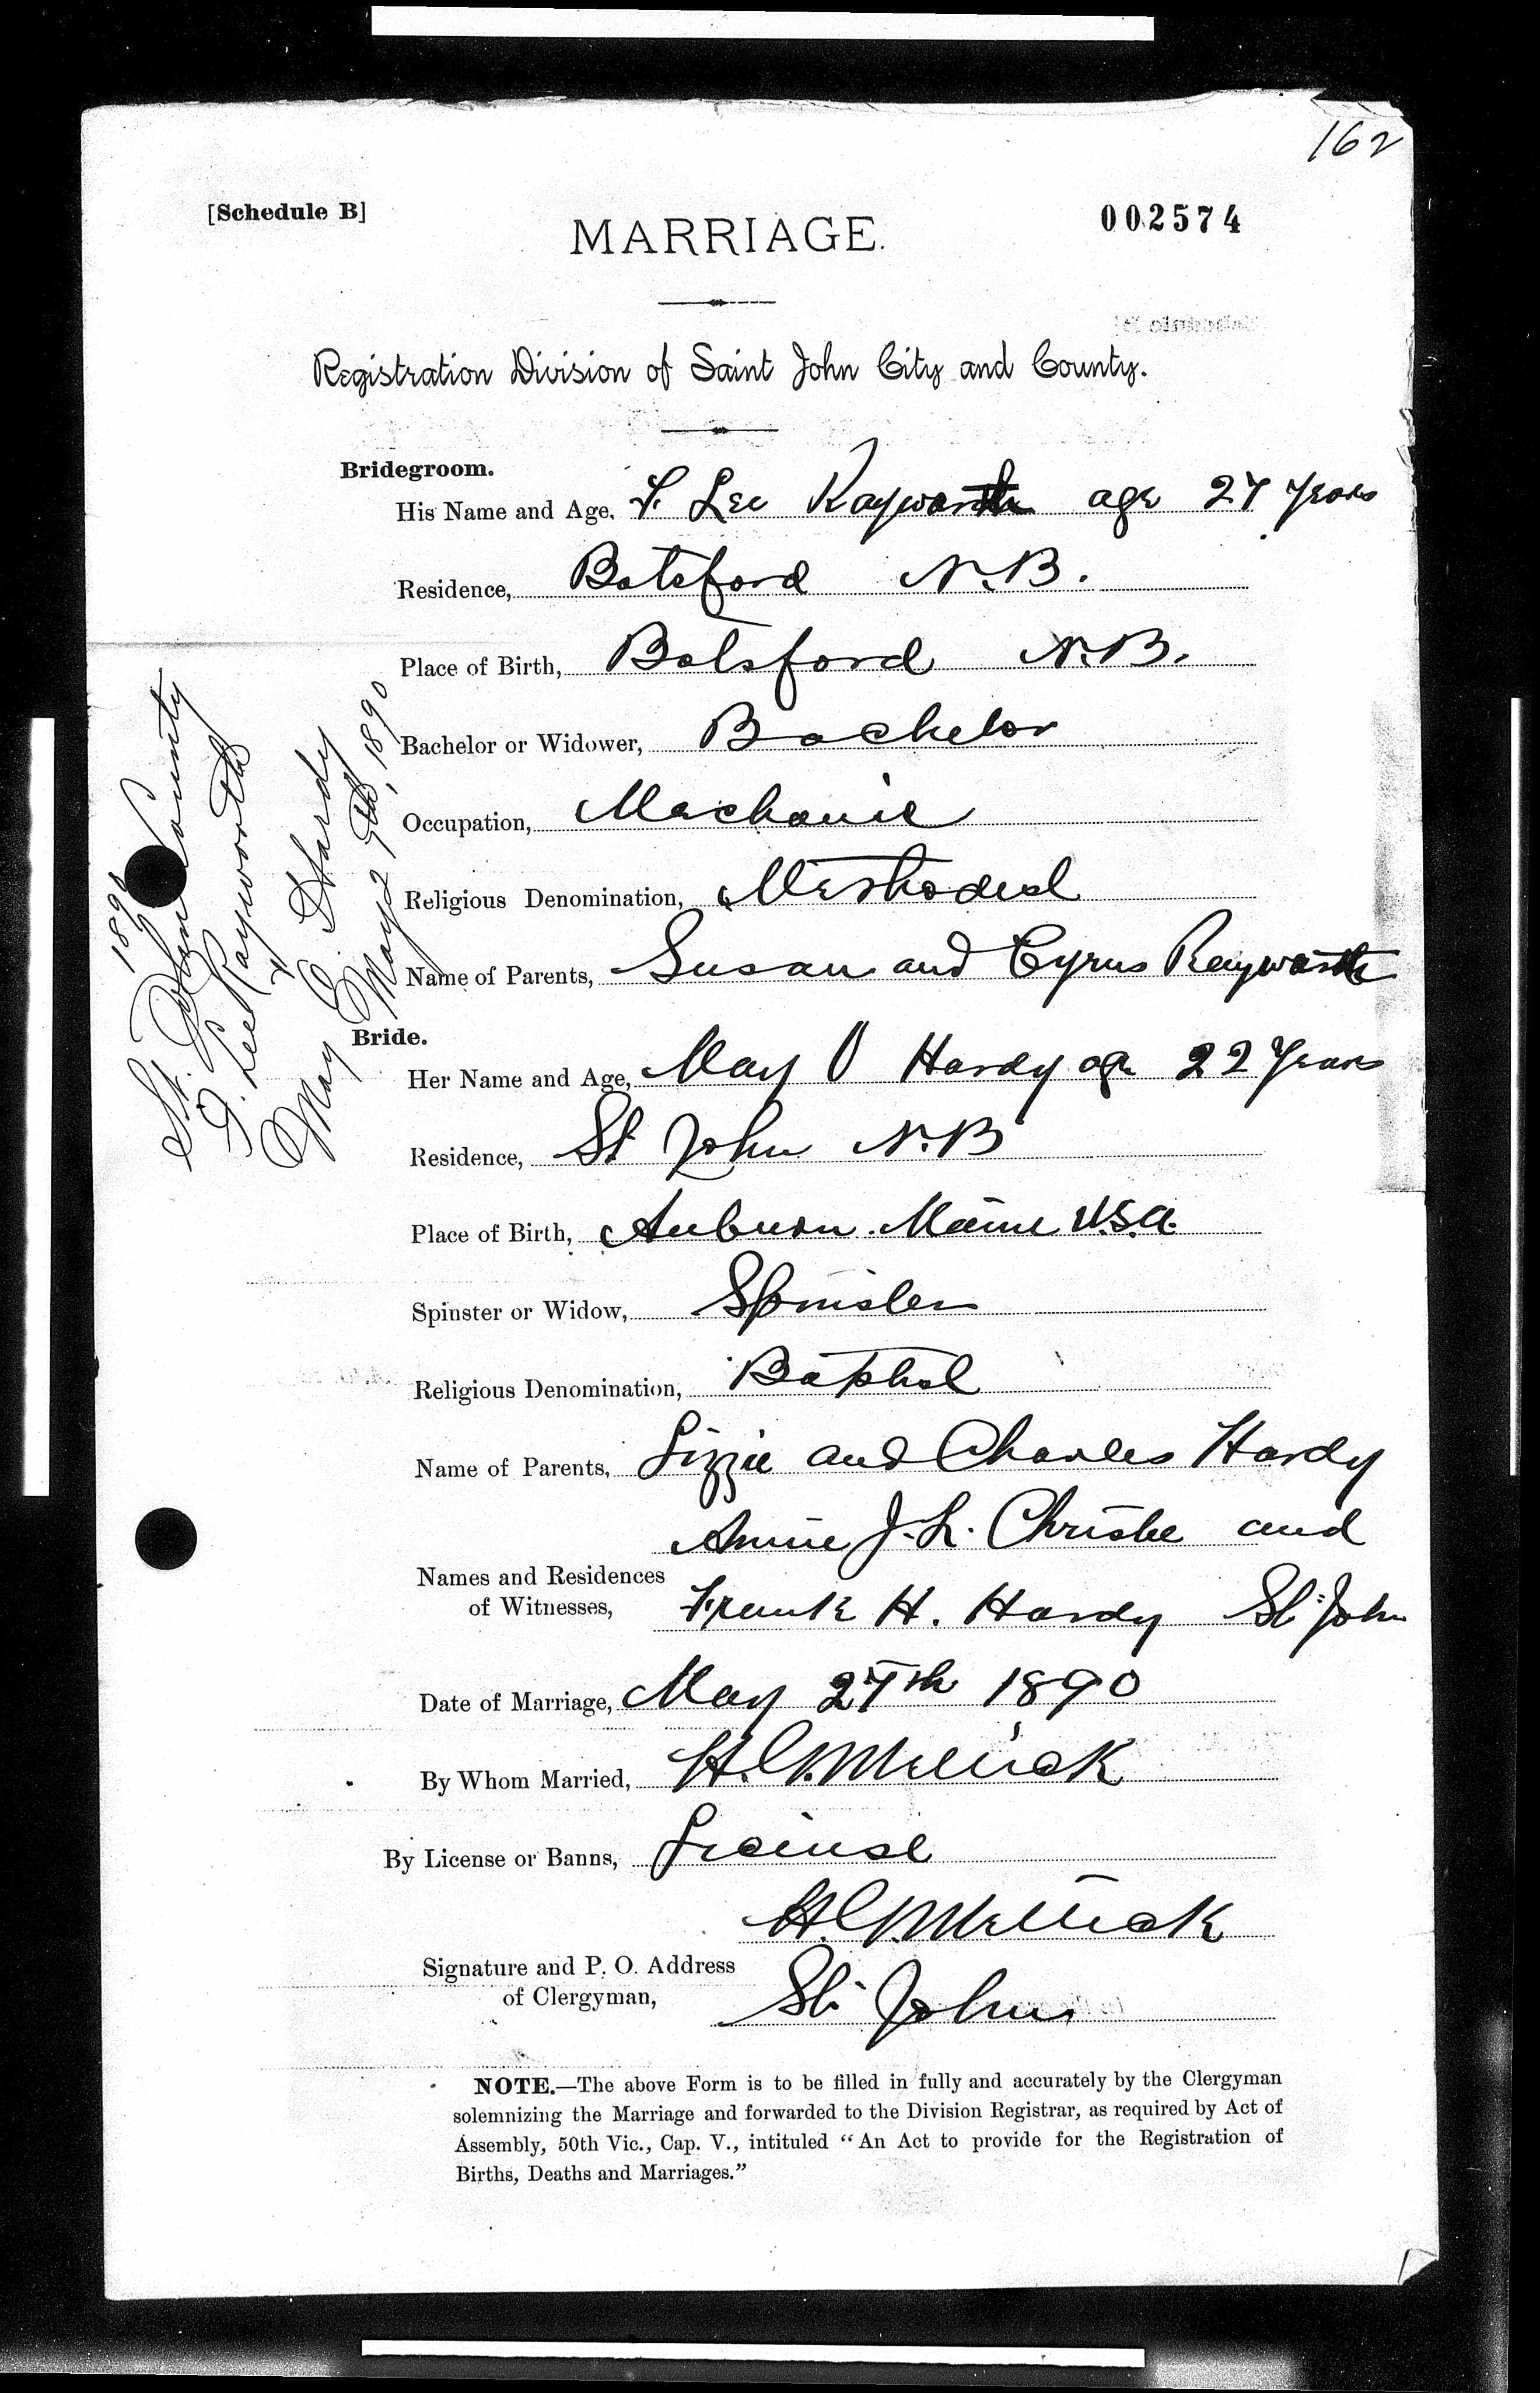 162
[Schedule B]
002574
MARRIAGE.
Registration Division of Saint John City and County.
Bridegroom.
His Name and Age, F. Lee Rayworth age 27 Years
Residence, Botsford N.B.
Place of Birth, Botsford N.B.
Bachelor or Widower, Bachelor
Occupation, Mechanic
Religious Denomination, Methodist
Name of Parents, Susan and Cyrus Rayworth
1890
St. John County
Lee Rayworth
&
May E. Hardy
May 27th, 1890
Bride.
Her Name and Age, May Hardy age 22 Years
Residence, St John N.B
Place of Birth, Auburn. Maine U.S.A.
Spinster or Widow, Spinster
Religious Denomination, Baptist
Name of Parents, Lizzie and Charles Hardy
Annie J. L. Christie and
Names and Residences
of Witnesses, Frank H. Hardy St John
Date of Marriage, May 27th 1890
By Whom Married, H. G. Mellick
By License or Banns, License
H. G. Mellick
Signature and P. O. Address
of Clergyman, St. John
NOTE.—The above Form is to be filled in fully and accurately by the Clergyman
solemnizing the Marriage and forwarded to the Division Registrar, as required by Act of
Assembly, 50th Vic., Cap. V., intituled “An Act to provide for the Registration of
Births, Deaths and Marriages.”